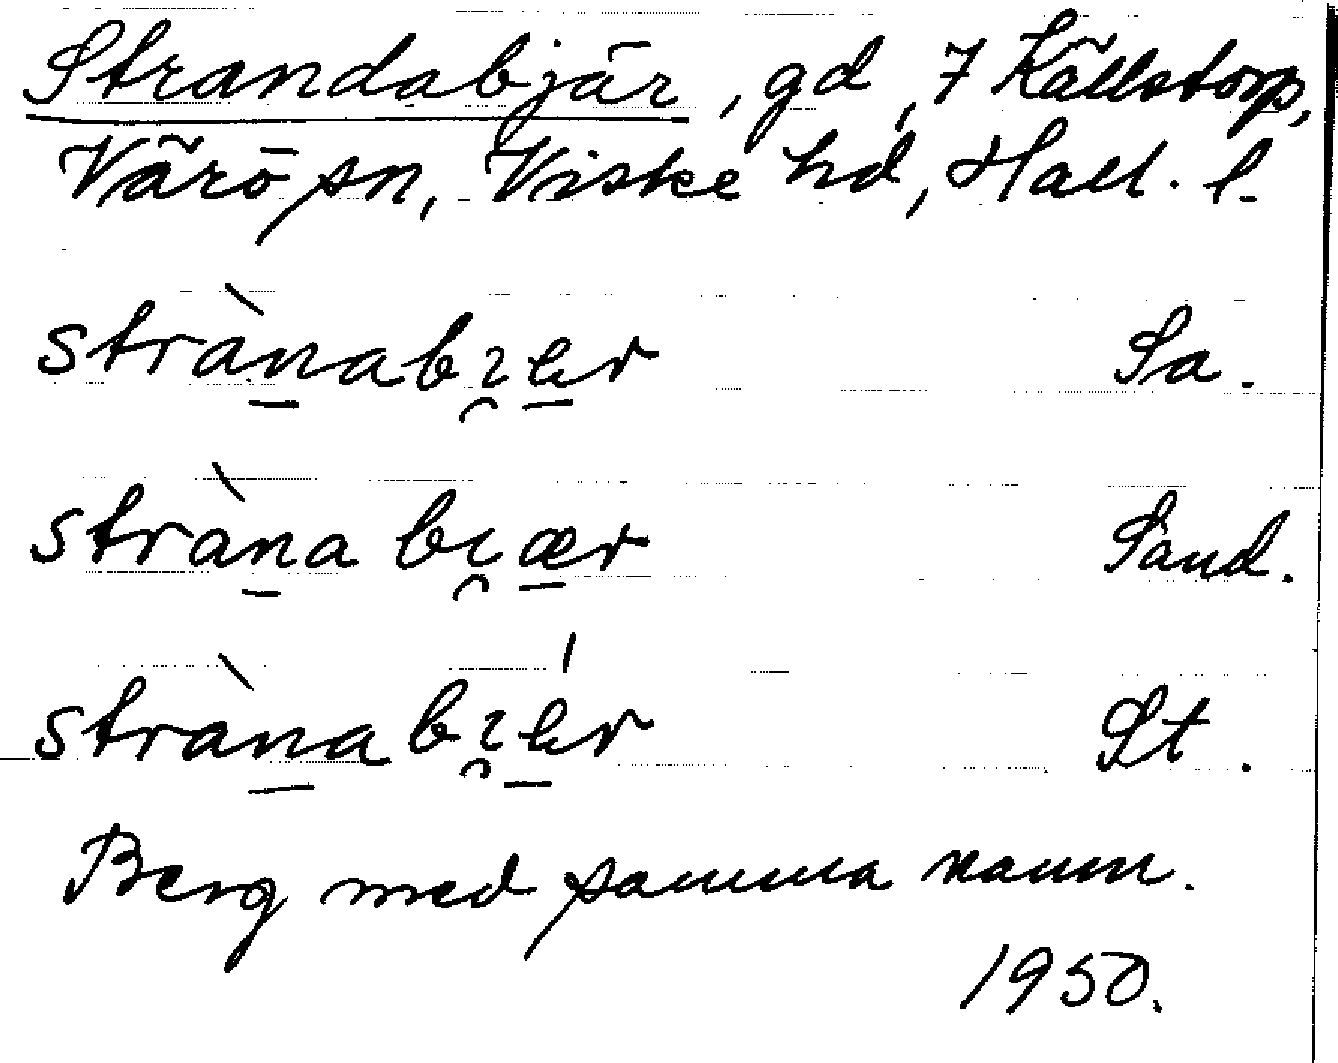 Strandabjär, gd, 7 Källstorp,
Värö sn, Viske hd, Hall. l.
strànabı̯er Sa.
stràna bı̯ær Sand.
stràna bı̯ér St.
Berg med samma namn.
1950.